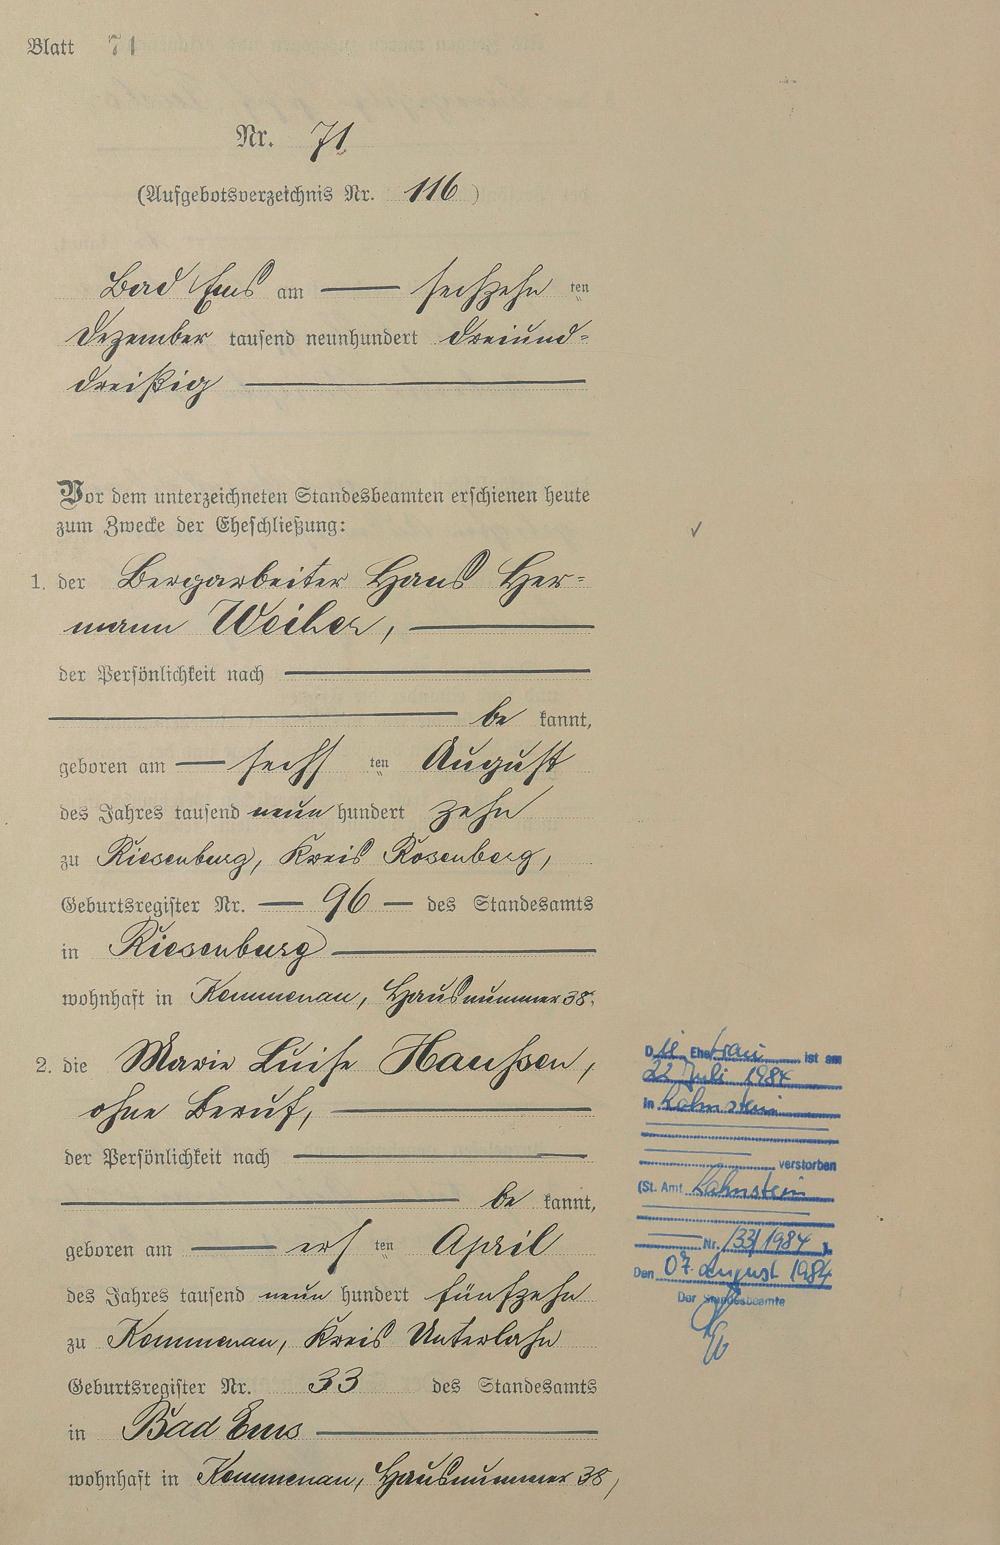 Blatt 71
Nr. 71
(Aufgebotsverzeichnis Nr. 116)
Bad Ems am sechzehn ten
Dezember tausend neunhundert dreiund-
dreißig
Vor dem unterzeichneten Standesbeamten erschienen heute
zum Zwecke der Eheschließung:
1. der Bergarbeiter Hans Her-
mann Weiher,
der Persönlichkeit nach
be kannt,
geboren am sechs ten August
des Jahres tausend neun hundert zehn
zu Riesenburg, Kreis Rosenberg,
Geburtsregister Nr. 96 des Standesamts
in Riesenburg
wohnhaft in Kemmenau, Hausnummer 38.
2. die Marie Luise Haußen,
ohne Beruf,
der Persönlichkeit nach
be kannt,
geboren am ers ten April
des Jahres tausend neun hundert fünfzehn
zu Kemmenau, Kreis Unterlahn
Geburtsregister Nr. 33 des Standesamts
in Bad Ems
wohnhaft in Kemmenau, Hausnummer 38,
Die Ehefrau ist am
22. Juli 1984
in Lahnstein
verstorben
(St. Amt Lahnstein
Nr. 133/1984).
Den 07. August 1984
Der Standesbeamte